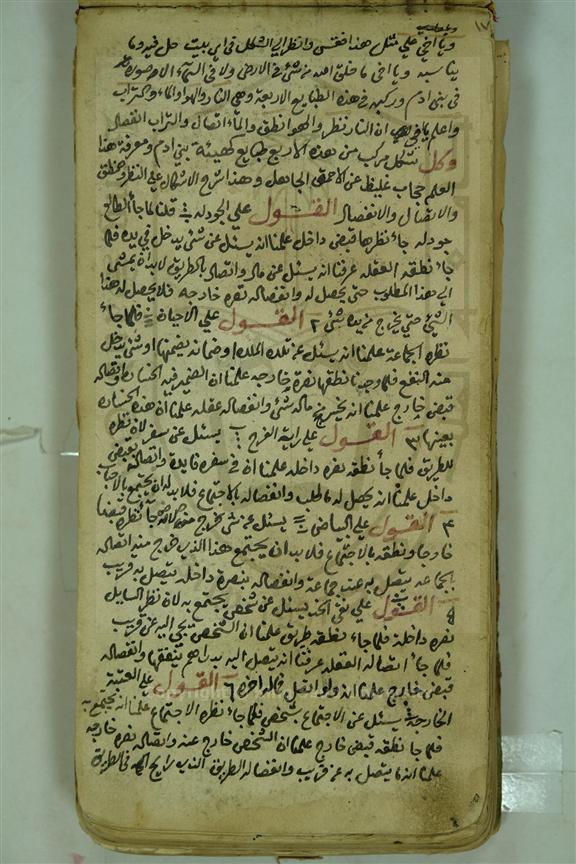 ١٧
ويا اخي علي مثل هذا فقس وانظر الي الشكل في اي بيت حل فيه وما
يناسبه ويا اخي ما خلق الله من شئ في الارض ولا في السماء الا وصوره
في بني ادم وركبه في هذه الطبايع الاربعة وهي النار والهوا والماء والتراب
واعلم يا اخي ان النار نظر والهوا نطق والماء اتصال والتراب انفصال
وكل شكل مركب من هذه الاربع طبايع كهيئة بني ادم ومعرفة هذا
العلم حجاب غليظ عن الاحمق الجاهل وهذا شرح الاشكال علي النظر والنطق
والاتصال والانفصال القول علي الجودله قلنا لما جأ الطالع
جودله جأ نظرها قبض داخل علمنا انه يسئل عن شئ يدخل في يده فلما
جأ نطقه العقله عرفنا انه يسئل عن مال واتصاله بالطريق لا بد انه يمشي
الي هذا المطلوب حتي يحصل له وانفصاله نقره خارجه فلا يحصل له هذا
الشئ حتي يخرج من يده شئ ٢ القول علي الاحيان فلما جأ
نظره الجماعة علمنا انه يسئل عن تلك وضمانه يضمنها او شئ يدخل
منه النفع فلما وجدنا نطقها نقرة خارجه علمنا ان الضمير فيه الخساره واتصاله
قبض خارج علمنا انه يخرج من ماله شئ وانفصاله عقله علمنا ان هذه الخساره
بعينها ٣ القول علي راية الفرح يسئل عن سفر لان نظره
للطريق فلما جأ نطقه نقره داخله علمنا ان في سفره فايدة واتصاله بقبض
داخل علمنا انه يحصل له ما طلب وانفصاله بالاجتماع فلا بد له ان يجتمع بالاحباب
٤ القول علي البياض يسئل عن شئ خرج منه لانه جأ نظره قبضا
خارجا ونطقه بالاجتماع فلا بد ان يجتمع هذا الذي خرج منه اتصاله
بالجماعه يتصل به عند جماعة وانفصاله بنصرة داخله يتصل به قريب
٥ القول علي نقي الخد يسئل عن شخص يجتمع به لان نظر السايل
نقره داخلة فلما جاء نطقه طريق علمنا ان الشخص يجي اليه عن قريب
فلما جأ اتصاله العقله عرفنا انه يتصل اليه بدراهم ينفقها وانفصاله
قبض خارج علمنا انه ولو اتصل ماله اخره ٦ القول علي العتبة
الخارجه يسئل عن الاجتماع بشخص فلما جأ نظره الاجتماع علمنا انه يجتمع به
فلما جأ نطقه قبض خارج علمنا ان الشخص خارج عنه واتصاله نقره خارجه
علمنا انه ما يتصل به عن قريب وانفصاله الطريق الذي رايح اليه في الطريق